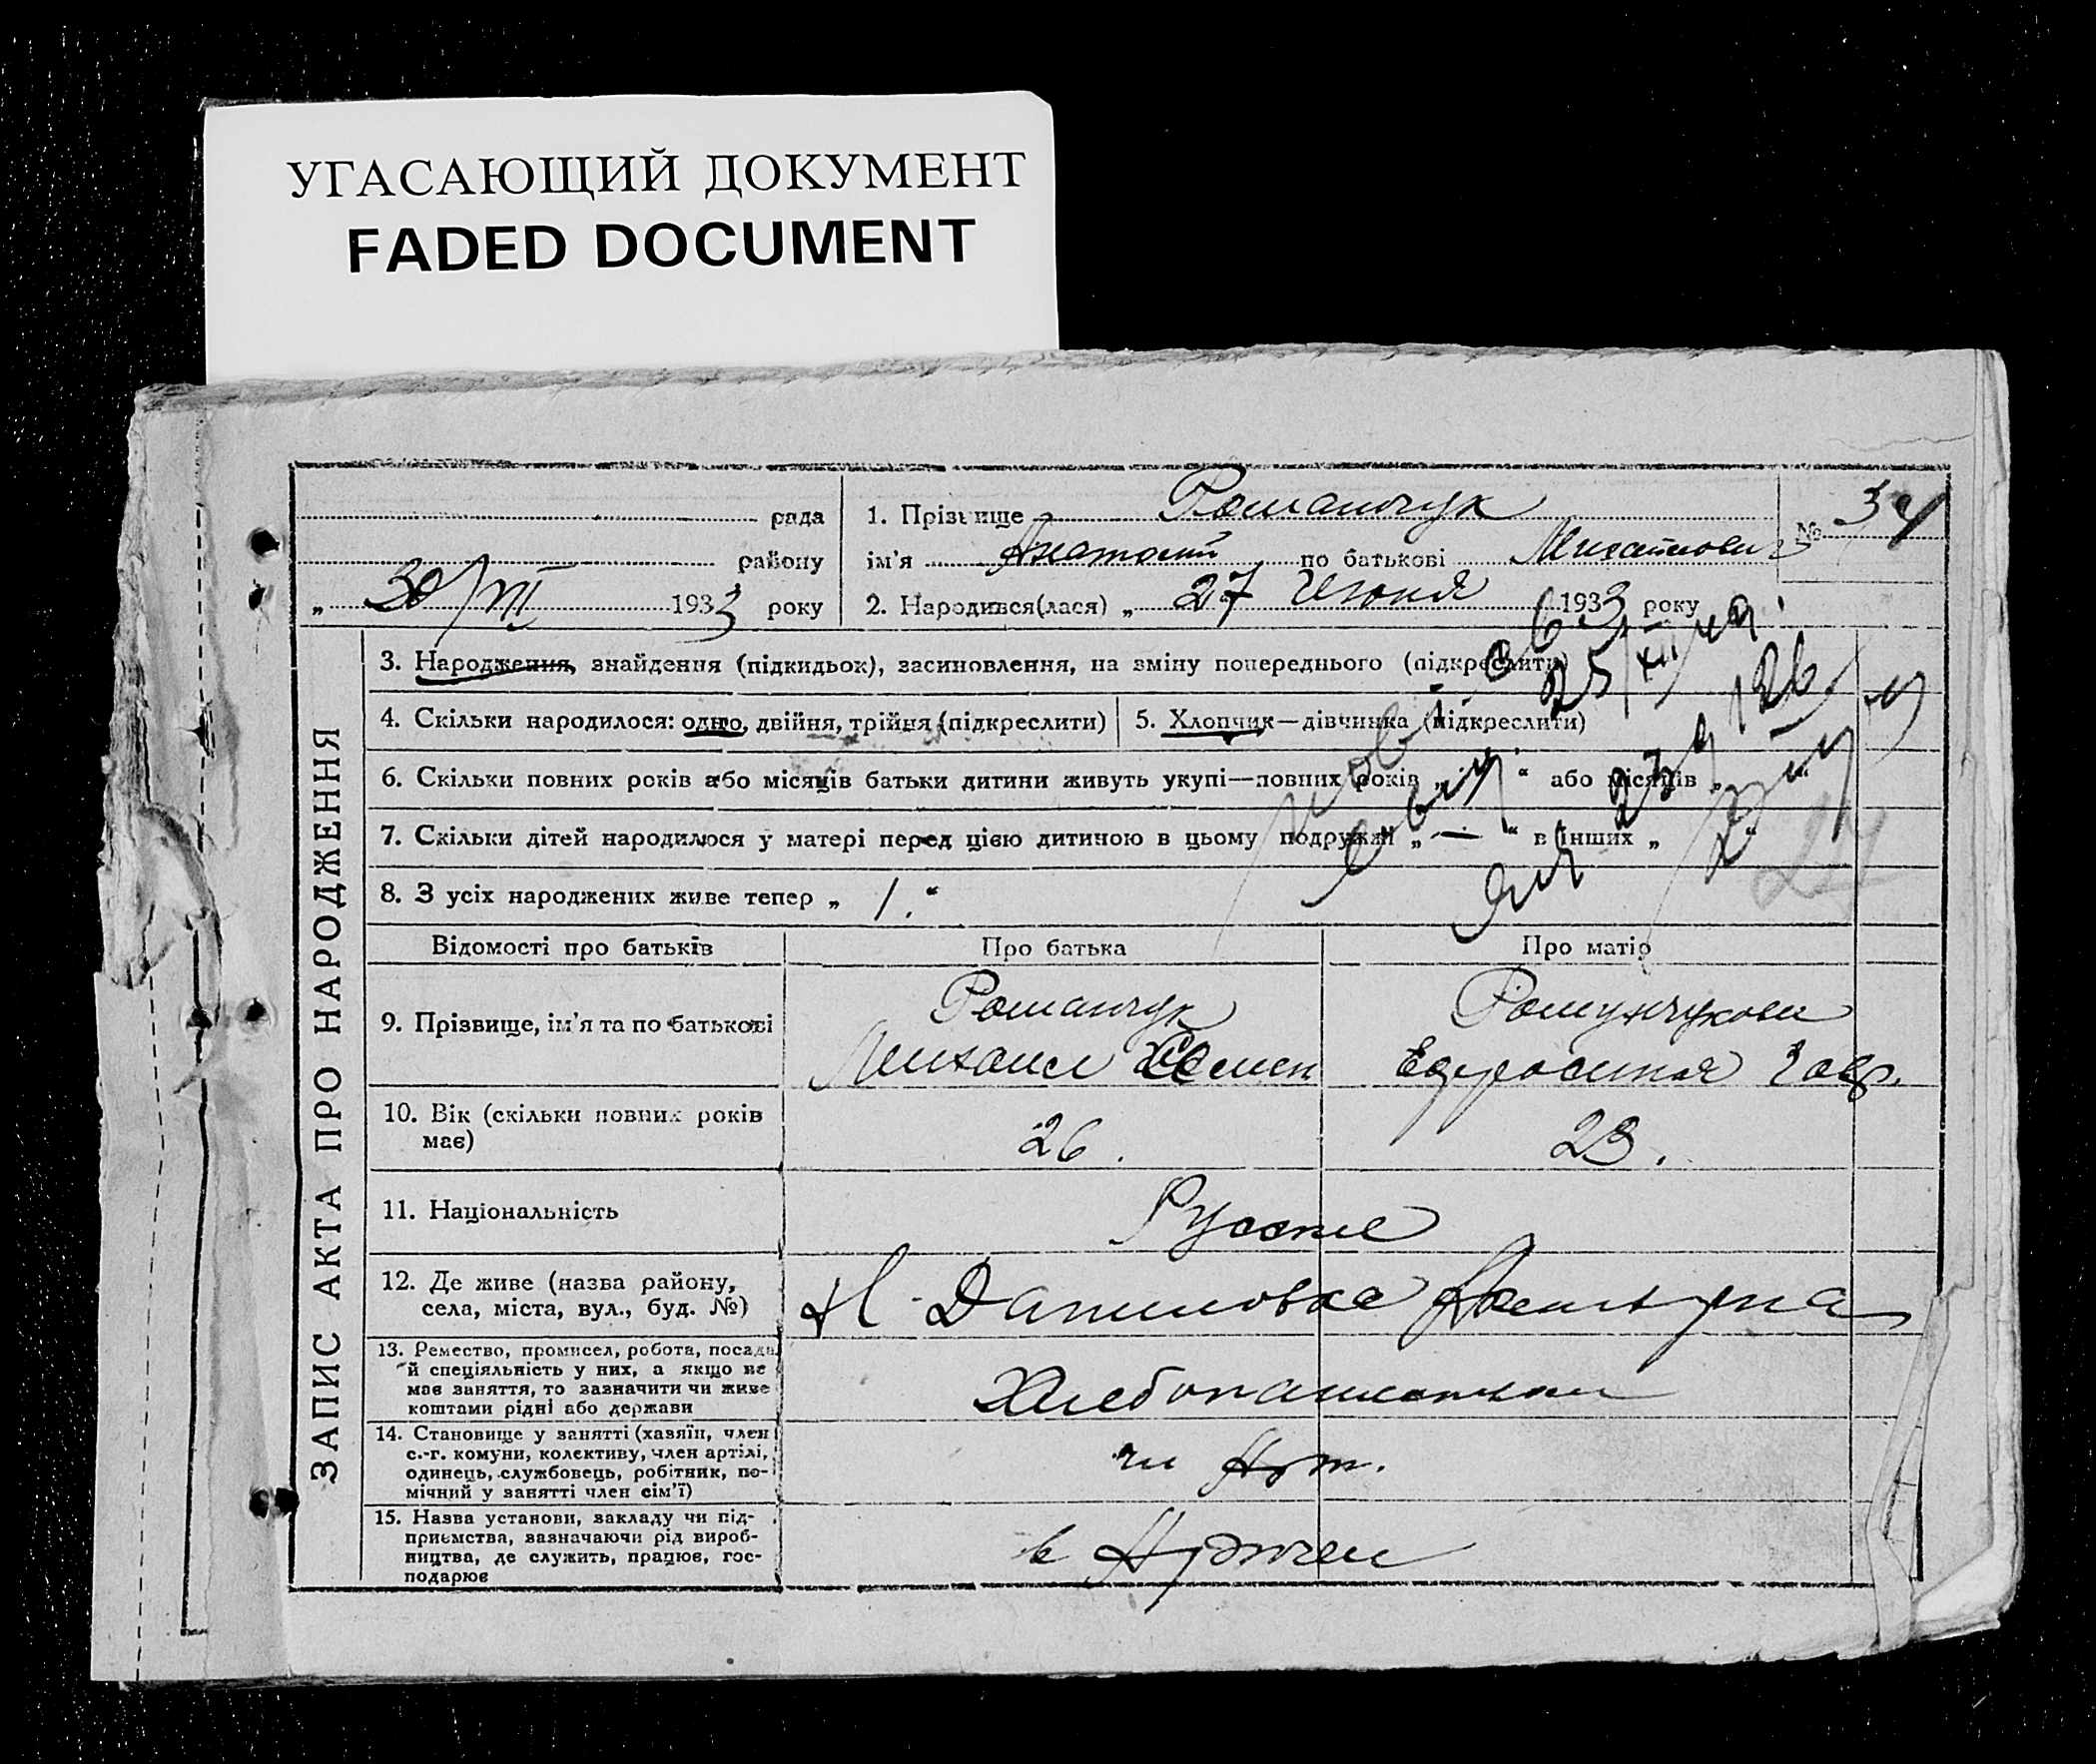 УГАСАЮЩИЙ ДОКУМЕНТ
FADED DOCUMENT
рада
району
„ 30/VI 1933 року
1. Прізвище Романчук
ім'я Анатолий по батькові Михайлович
№ 34
2. Народився(лася) „ 27 Июня 1933 року
ЗАПИС АКТА ПРО НАРОДЖЕННЯ
3. Народження, знайдення (підкидьок), засиновлення, на зміну попереднього (підкреслити)
4. Скільки народилося: одно, двійня, трійня (підкреслити)
5. Хлопчик—дівчинка (підкреслити)
6. Скільки повних років або місяців батьки дитини живуть укупі—повних років „ “ або місяців „
7. Скільки дітей народилося у матері перед цією дитиною в цьому подружжі „ — “ в інших „ “
8. З усіх народжених живе тепер „ 1. “
25/XII
Відомості про батьків Про батька Про матір
9. Прізвище, ім'я та по батькові
Романчук
Михаил Семен
Евросиния Гавр.
10. Вік (скільки повних років
має)
26. 23.
11. Національність
Русские
12. Де живе (назва району,
села, міста, вул., буд. №)
Н-Даниловка
13. Ремество, промисел, робота, посада
й спеціяльність у них, а якщо не
має заняття, то зазначити чи живе
коштами рідні або держави
Хлебопашество
14. Становище у занятті (хазяїн, член
с.-г. комуни, колективу, член артілі,
одинець, службовець, робітник, по-
мічний у занятті член сім'ї)
чл Арт.
15. Назва установи, закладу чи під-
приємства, зазначаючи рід вироб-
ництва, де служить, працює, гос-
подарює
в Артели